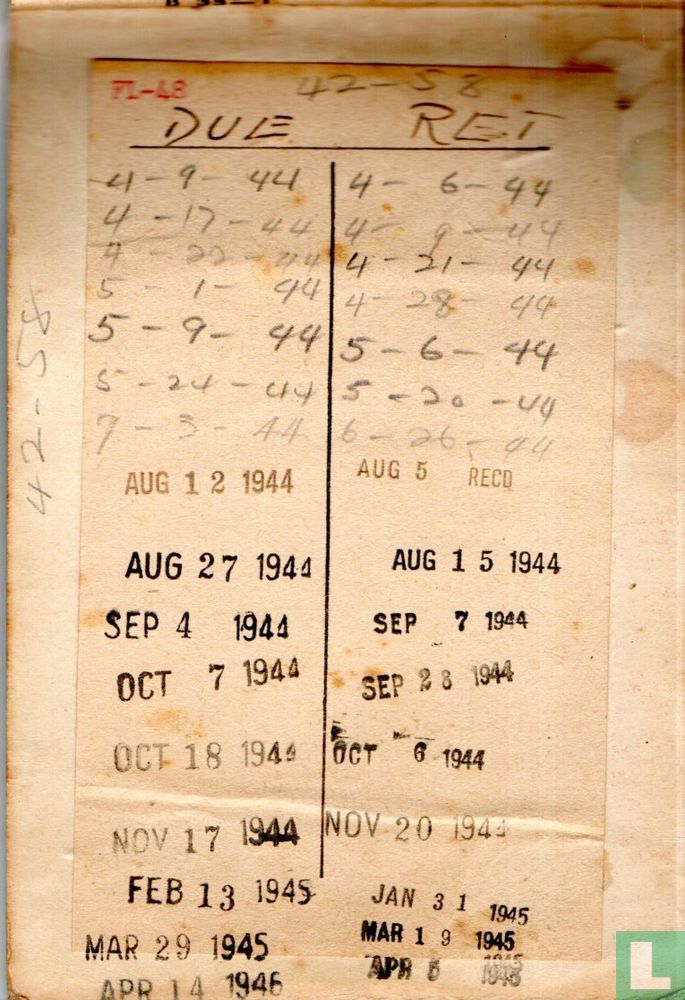 PL-48 42-58
DUE RET
4-9-44 4-6-44
4-17-44 4-9-44
4-22-44 4-21-44
5-1-44 4-28-44
5-9-44 5-6-44
5-24-44 5-20-44
7-3-44 6-26-44
AUG 12 1944 AUG 5 RECD
AUG 27 1944 AUG 15 1944
SEP 4 1944 SEP 7 1944
OCT 7 1944 SEP 28 1944
OCT 18 1944 OCT 6 1944
NOV 17 1944 NOV 20 1944
FEB 13 1945 JAN 31 1945
MAR 29 1945 MAR 19 1945
APR 14 1946 APR 1945
42-58
L